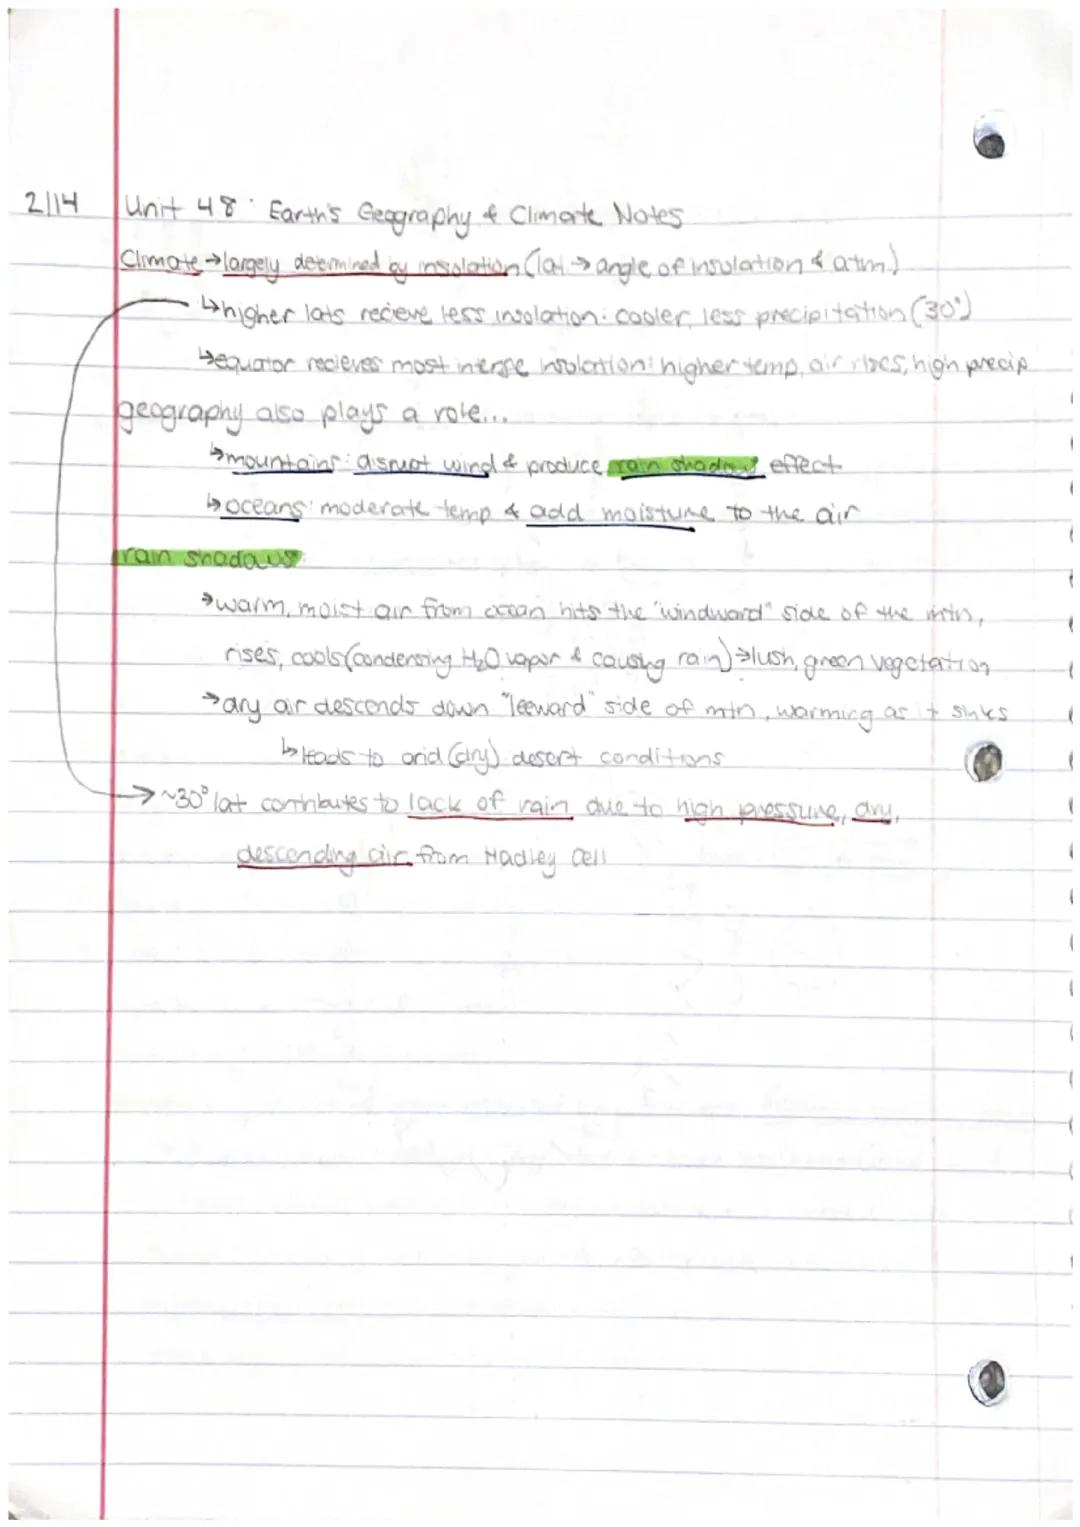 2/14 Unit 48: Earth's Geography & Climate Notes
Climate → largely determined by insolation (lat → angle of insolation & atm.)
↳ higher lats recieve less insolation: cooler, less precipitation (30°)
↳ equator recieves most intense insolation: higher temp, air rises, high precip
geography also plays a role...
↳ mountains: disrupt wind & produce rain shadow effect
↳ oceans: moderate temp & add moisture to the air
rain shadows:
→ warm, moist air from ocean hits the "windward" side of the mtn,
rises, cools (condensing H₂O vapor & causing rain) → lush, green vegetation
→ dry air descends down "leeward" side of mtn, warming as it sinks
↳ leads to arid (dry) desert conditions
→ ~30° lat contributes to lack of rain due to high pressure, dry,
descending air from Hadley Cell